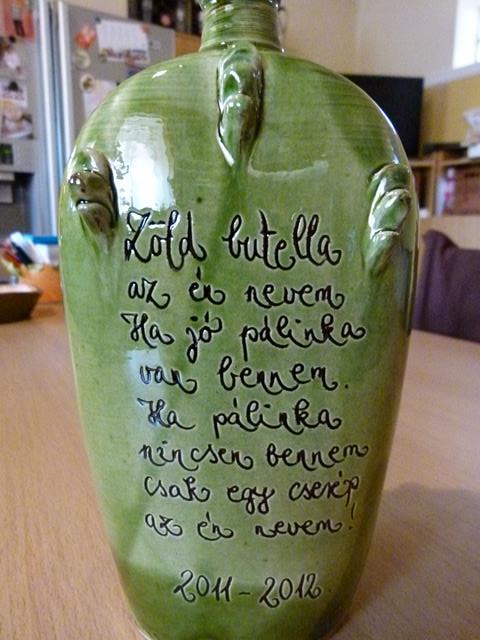 Zöld butella
az én nevem
Ha jó pálinka
van bennem.
Ha pálinka
nincsen bennem
csak egy cserép
az én nevem!
2011-2012